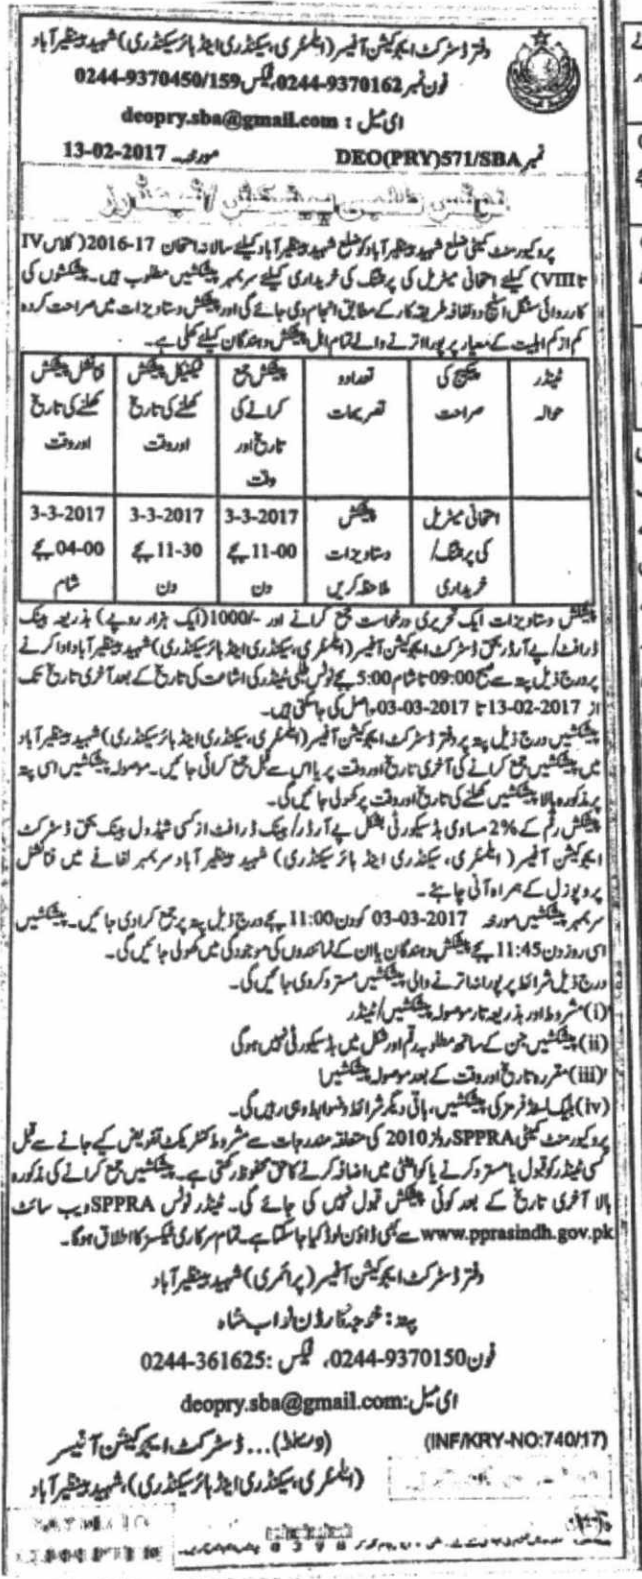 دفتر ڈسٹرکٹ ایجوکیشن آفیسر (ایلمنٹری، سیکنڈری اینڈ ہائر سیکنڈری) شہید بینظیر آباد
فون نمبر 0244-9370162، فیکس 0244-9370450/159
ای میل : deopry.sba@gmail.com
نمبر DEO(PRY)571/SBA مورخہ 13-02-2017
نوٹس طلبی پیشکش / ٹینڈرز
پروکیورمنٹ کمیٹی ضلع شہید بینظیر آباد کو ضلع شہید بینظیر آباد کیلئے سالانہ امتحان 2016-17 (کلاس IV
تا VIII) کیلئے امتحانی میٹریل کی پرنٹنگ کی خریداری کیلئے سربمہر پیشکشیں مطلوب ہیں۔ پیشکشوں کی
کارروائی سنگل اسٹیج دو لفافہ طریقہ کار کے مطابق انجام دی جائے گی اور پیشکش دستاویزات میں صراحت کردہ
کم از کم اہلیت کے معیار پر پورا اترنے والے تمام اہل پیشکش دہندگان کیلئے کھلی ہے۔
ٹینڈر حوالہ
پیکیج کی صراحت
تعداد و تصریحات
پیشکش جمع کرانے کی تاریخ اور وقت
ٹیکنیکل پیشکش کھلنے کی تاریخ اور وقت
فنانشل پیشکش کھلنے کی تاریخ اور وقت
امتحانی میٹریل کی پرنٹنگ/ خریداری
پیشکش دستاویزات ملاحظہ کریں
3-3-2017 11-00 بجے دن
3-3-2017 11-30 بجے دن
3-3-2017 04-00 بجے شام
پیشکش دستاویزات ایک تحریری درخواست جمع کرانے اور -/1000 (ایک ہزار روپے) بذریعہ بینک
ڈرافٹ/ پے آرڈر بحق ڈسٹرکٹ ایجوکیشن آفیسر (ایلمنٹری، سیکنڈری اینڈ ہائر سیکنڈری) شہید بینظیر آباد ادا کرنے
پر درج ذیل پتہ سے صبح 09:00 تا شام 5:00 بجے نوٹس طلبی ٹینڈر کی اشاعت کی تاریخ کے بعد آخری تاریخ تک
از 13-02-2017 تا 03-03-2017 حاصل کی جاسکتی ہیں۔
پیشکشیں درج ذیل پتہ پر دفتر ڈسٹرکٹ ایجوکیشن آفیسر (ایلمنٹری، سیکنڈری اینڈ ہائر سیکنڈری) شہید بینظیر آباد
میں پیشکشیں جمع کرانے کی آخری تاریخ اور وقت پر یا اس سے قبل جمع کرائی جائیں۔ موصولہ پیشکشیں اسی پتہ
پر مذکورہ بالا پیشکشیں کھلنے کی تاریخ اور وقت پر کھولی جائیں گی۔
پیشکش رقم کے 2% مساوی بڈ سیکورٹی بشکل پے آرڈر/ بینک ڈرافٹ از کسی شیڈول بینک بحق ڈسٹرکٹ
ایجوکیشن آفیسر (ایلمنٹری، سیکنڈری اینڈ ہائر سیکنڈری) شہید بینظیر آباد سربمہر لفافے میں فنانشل
پروپوزل کے ہمراہ آنی چاہئے۔
سربمہر پیشکشیں مورخہ 03-03-2017 کو دن 11:00 بجے درج ذیل پتہ پر جمع کرادی جائیں۔ پیشکشیں
اسی روز دن 11:45 بجے پیشکش دہندگان یا ان کے نمائندوں کی موجودگی میں کھولی جائیں گی۔
درج ذیل شرائط پر پورا نہ اترنے والی پیشکشیں مسترد کردی جائیں گی۔
(i) مشروط اور بذریعہ تار موصولہ پیشکشیں/ ٹینڈر
(ii) پیشکشیں جن کے ساتھ مطلوبہ رقم اور شکل میں بڈ سیکورٹی نہیں ہوگی
(iii) مقررہ تاریخ اور وقت کے بعد موصولہ پیشکشیں
(iv) بلیک لسٹڈ فرمز کی پیشکشیں، باقی دیگر شرائط و ضوابط وہی رہیں گی۔
پروکیورمنٹ کمیٹی SPPRA رولز 2010 کی متعلقہ مندرجات سے مشروط کنٹریکٹ تفویض کیے جانے سے قبل
کسی ٹینڈر کو قبول یا مسترد کرنے یا کوانٹٹی میں اضافہ کرنے کا حق محفوظ رکھتی ہے۔ پیشکشیں جمع کرانے کی مذکورہ
بالا آخری تاریخ کے بعد کوئی پیشکش قبول نہیں کی جائے گی۔ ٹینڈر نوٹس SPPRA ویب سائٹ
www.pprasindh.gov.pk سے بھی ڈاؤن لوڈ کیا جاسکتا ہے۔ تمام سرکاری ٹیکسز کا اطلاق ہوگا۔
دفتر ڈسٹرکٹ ایجوکیشن آفیسر (پرائمری) شہید بینظیر آباد
پتہ : خوجہ گارڈن نواب شاہ
فون 0244-9370150، فیکس : 0244-361625
ای میل : deopry.sba@gmail.com
(INF/KRY-NO:740/17) (دستخط)... ڈسٹرکٹ ایجوکیشن آفیسر
(ایلمنٹری، سیکنڈری اینڈ ہائر سیکنڈری)، شہید بینظیر آباد